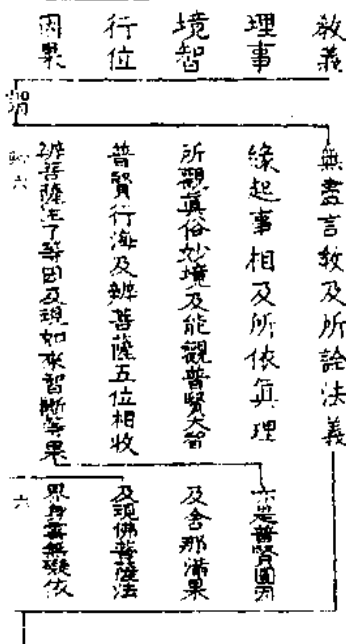 教義
理事
境智
行位
因果
謂
無盡言教及所詮法義
緣起事相及所依真理
所觀真俗妙境及能觀普賢大智
普賢行海及辨菩薩五位相收
辨菩薩生了等因及現如來智斷等果
亦是普賢圓因
及舍那滿果
及現佛菩薩法
界身雲無礙依
六